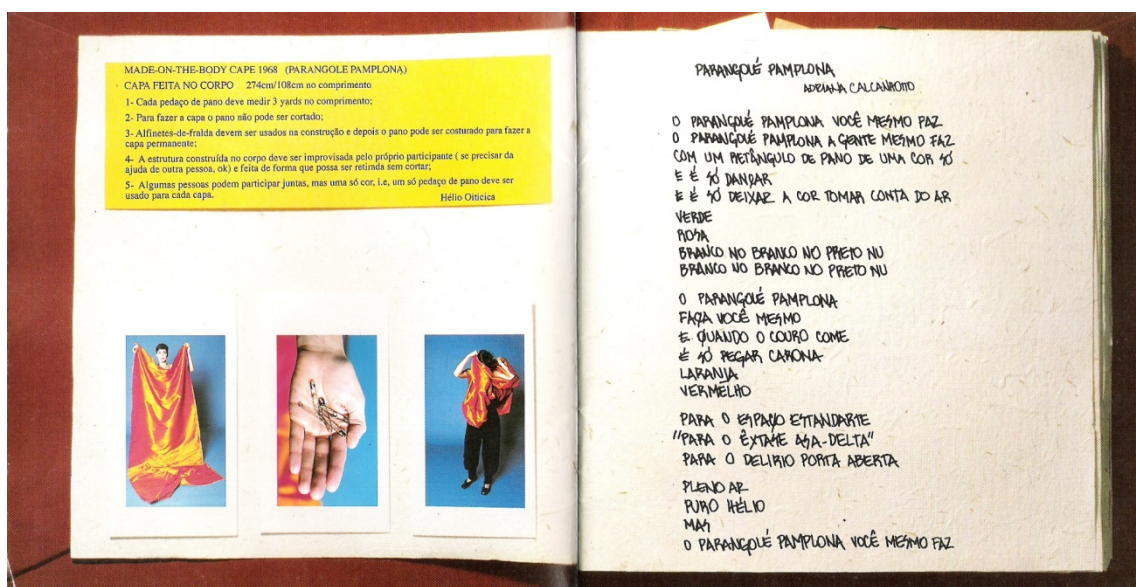 MADE-ON-THE-BODY CAPE 1968 (PARANGOLE PAMPLONA)
CAPA FEITA NO CORPO 274cm/108cm no comprimento
1- Cada pedaço de pano deve medir 3 yards no comprimento;
2- Para fazer a capa o pano não pode ser cortado;
3- Alfinetes-de-fralda devem ser usados na construção e depois o pano pode ser costurado para fazer a
capa permanente;
4- A estrutura construída no corpo deve ser improvisada pelo próprio participante ( se precisar da
ajuda de outra pessoa, ok) e feita de forma que possa ser retirada sem cortar;
5- Algumas pessoas podem participar juntas, mas uma só cor, i.e, um só pedaço de pano deve ser
usado para cada capa.
Hélio Oiticica
PARANGOLÉ PAMPLONA
ADRIANA CALCANHOTTO
O PARANGOLÉ PAMPLONA VOCÊ MESMO FAZ
O PARANGOLÉ PAMPLONA A GENTE MESMO FAZ
COM UM RETÂNGULO DE PANO DE UMA COR SÓ
E É SÓ DANÇAR
E É SÓ DEIXAR A COR TOMAR CONTA DO AR
VERDE
ROSA
BRANCO NO BRANCO NO PRETO NU
BRANCO NO BRANCO NO PRETO NU
O PARANGOLÉ PAMPLONA
FAÇA VOCÊ MESMO
E QUANDO O COURO COME
É SÓ PEGAR CARONA
LARANJA
VERMELHO
PARA O ESPAÇO ESTANDARTE
"PARA O ÊXTASE ASA-DELTA"
PARA O DELÍRIO PORTA ABERTA
PLENO AR
PURO HÉLIO
MAS
O PARANGOLÉ PAMPLONA VOCÊ MESMO FAZ